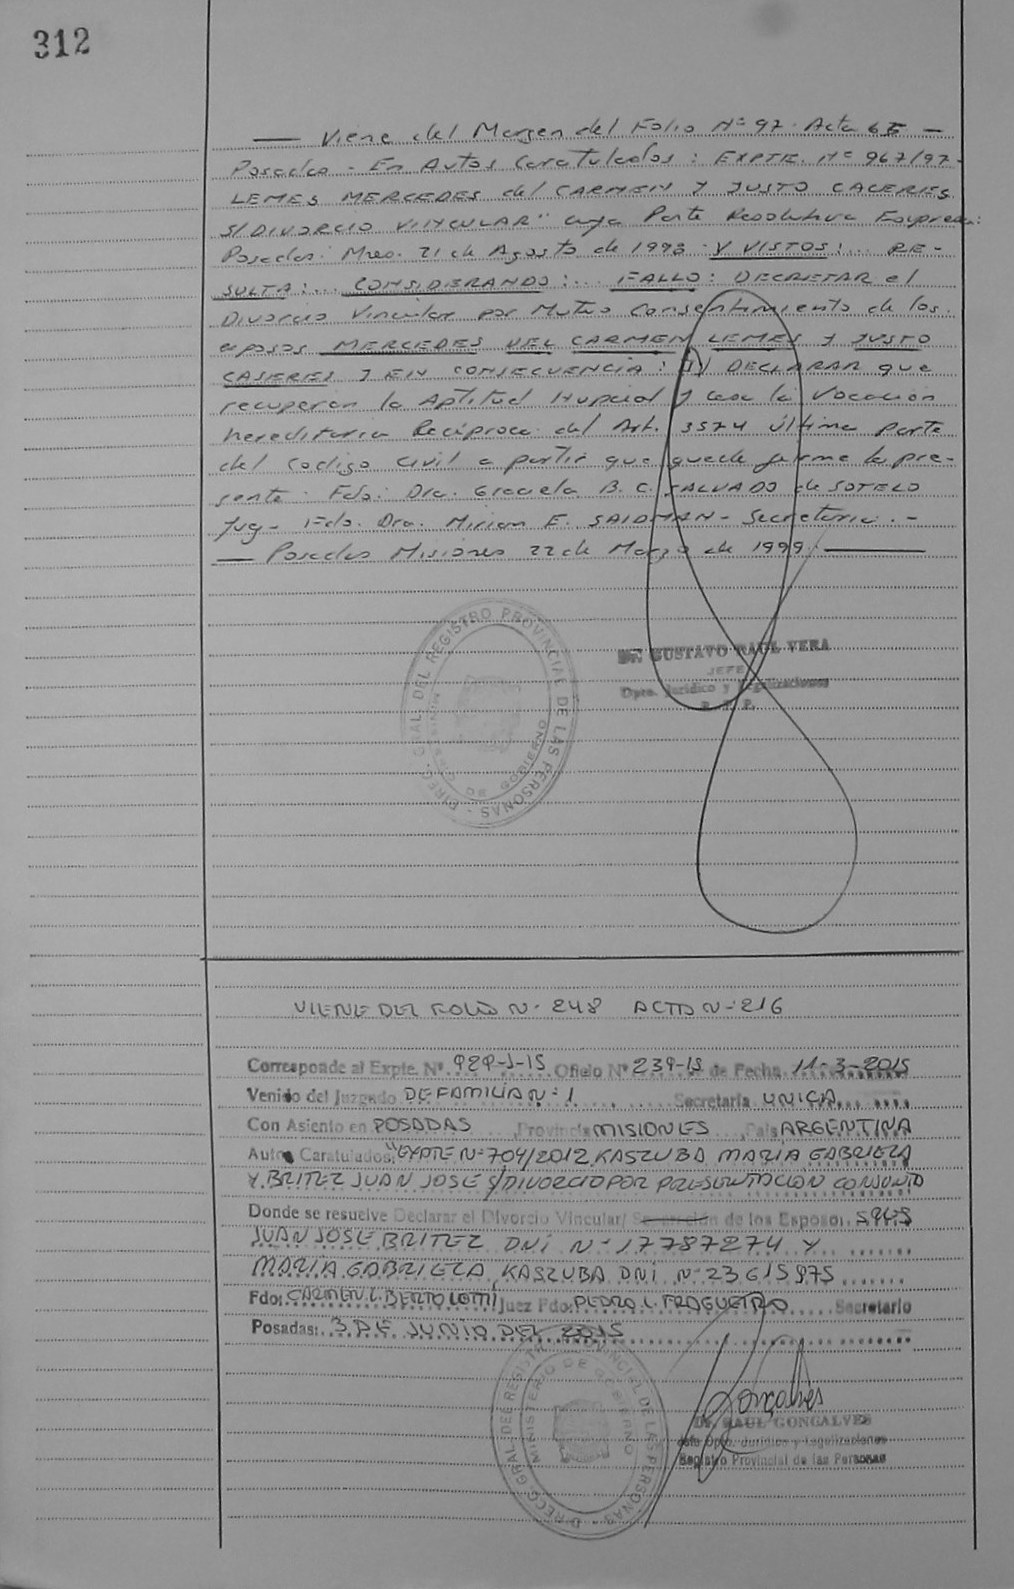 312
Viene del Margen del Folio Nº 97. Acta
Posadas - En Autos Caratulados: EXPTE. Nº 967/97-
LEMES MERCEDES del CARMEN Y JUSTO CACERIES
S/DIVORCIO VINCULAR" cuya Parte Resolutiva Expresa:
Posadas. Mnes. 21 de Agosto de 1998. Y VISTOS:... RE-
SULTA:... CONSIDERANDO:... FALLO: DECRETAR el
Divorcio Vincular por Mutuo Consentimiento de los
esposos MERCEDES DEL CARMEN LEMES y JUSTO
CASERIES Y EN CONSECUENCIA: DECLARAR que
recuperan la Aptitud Nupcial y cesa la Vocacion
hereditaria Reciproca del Art. 3574 última parte
del Codigo Civil a partir que quede firme la pre-
sente. Fdo: Dra. Graciela B. C. SALVADO de SOTELO
Juez - Fdo. Dra. Mirian E. SAIDMAN - Secretaria. -
Posadas Misiones 22 de Marzo de 1999.
DIREC. GRAL. DEL REGISTRO PROVINCIAL DE LAS PERSONAS
Dr. GUSTAVO RAUL VERA
JEFE
Dpto. Jurídico y Legalizaciones
R. P. P.
VIENE DEL FOLIO N- 248 ACTA N-216
Corresponde al Expte. Nº 929-J-15 Oficio Nº 239-15 de Fecha 11-3-2015
Venido del Juzgado DE FAMILIA N-1 Secretaría UNICA
Con Asiento en POSADAS Provincia MISIONES País ARGENTINA
Autos Caratulados "EXPTE Nº 704/2012 KASZUBA MARIA GABRIELA
Y BRITEZ JUAN JOSE S/DIVORCIO POR PRESENTACION CONJUNTA
Donde se resuelve Declarar el Divorcio Vincular/ Separación de los Esposos SRES
JUAN JOSE BRITEZ DNI N-17787274 Y
MARIA GABRIELA KASZUBA DNI N-23615975
Fdo: CARMEN L. BERTOLOTTI Juez Fdo: PEDRO L. FRAGUEIRO Secretario
Posadas: 3 DE JUNIO DEL 2015
DIRECC. GRAL. DEL REGISTRO PROVINCIAL DE LAS PERSONAS
MINISTERIO DE GOBIERNO
Gonçalves
Dr. RAUL GONCALVES
Jefe Dpto. Jurídico y Legalizaciones
Registro Provincial de las Personas